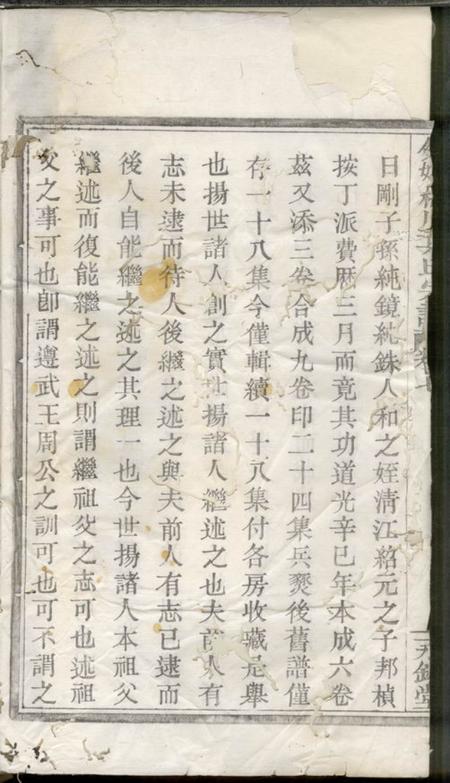 日剛子孫純鏡紈銖人和之姪清江紹元之子邦楨
按丁派費歷三月而竟其功道光辛巳年本成六卷
茲又添三卷合成九卷印二十四集兵燹後舊譜僅
存一十八集今僅輯續一十八集付各房收藏是舉
也揚世諸人創之實世揚諸人繼述之也夫前人有
志未逮而待人後繼之述之與夫前人有志已逮而
後人自能繼之述之其理一也今世揚諸人本祖父
繼述而復能繼之述之則謂繼祖父之志可也述祖
父之事可也卽謂遵武王周公之訓可也可不謂之
卷七